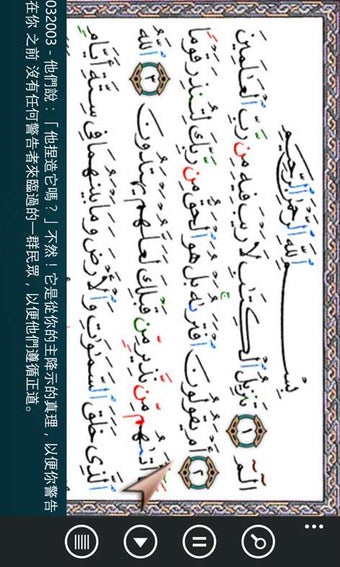 بِسْمِ ٱللَّهِ ٱلرَّحْمَٰنِ ٱلرَّحِيمِ
الٓمٓ ١ تَنزِيلُ ٱلْكِتَٰبِ لَا رَيْبَ فِيهِ مِن رَّبِّ ٱلْعَٰلَمِينَ
٢ أَمْ يَقُولُونَ ٱفْتَرَىٰهُ بَلْ هُوَ ٱلْحَقُّ مِن رَّبِّكَ لِتُنذِرَ قَوْمًا
مِّن نَّذِيرٍ مِّن قَبْلِكَ لَعَلَّهُمْ يَهْتَدُونَ ٣ ٱللَّهُ
ٱلَّذِى خَلَقَ ٱلسَّمَٰوَٰتِ وَٱلْأَرْضَ وَمَا بَيْنَهُمَا فِى سِتَّةِ أَيَّامٍ
032003 - 他們說：「他捏造它嗎？」不然！它是從你的主降示的真理，以便你警告
在你 之前 沒有任何警告者來臨過的一群民眾，以便他們遵循正道。